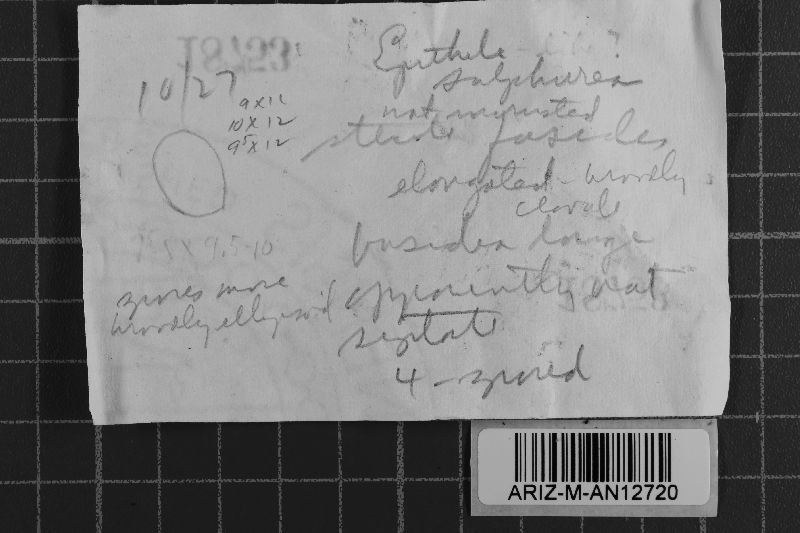 10/27
9 x 11
10 x 12
9⁵ x 12
9.5-10
spores more
broadly ellipsoid
Epithele ?
sulphurea
not incrusted
sterile fusoides
elongated - broadly
clavate
basidia large
apparently not
septate
4-spored
18753
ARIZ-M-AN12720